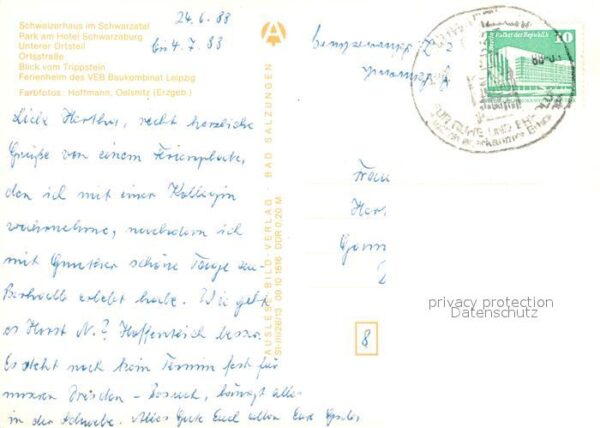 Schweizerhaus im Schwarzatal
Park am Hotel Schwarzaburg
Unterer Ortsteil
Ortsstraße
Blick vom Trippstein
Ferienheim des VEB Baukombinat Leipzig
Farbfotos: Hoffmann, Oelsnitz (Erzgeb.)
24.6.83
bis 4.7.83
Liebe Hertha, recht herzliche
Grüße von einem Ferienplatz,
den ich mit einer Kollegin
wahrnehme, nachdem ich
mit Gunther schöne Tage
erlebt habe. Wie geht
es Horst N.? Hoffentlich besser.
Es steht noch kein Termin fest für
unseren Dresden - Besuch, hängt alles
in der Schwebe. Alles Gute Euch allen Eure
AUSLESE-BILD-VERLAG · BAD SALZUNGEN
09 10 1616 DDR 0,20 M
z. Z. Schwarzburg
Palast der Republik
10
Frau
8
privacy protection
Datenschutz